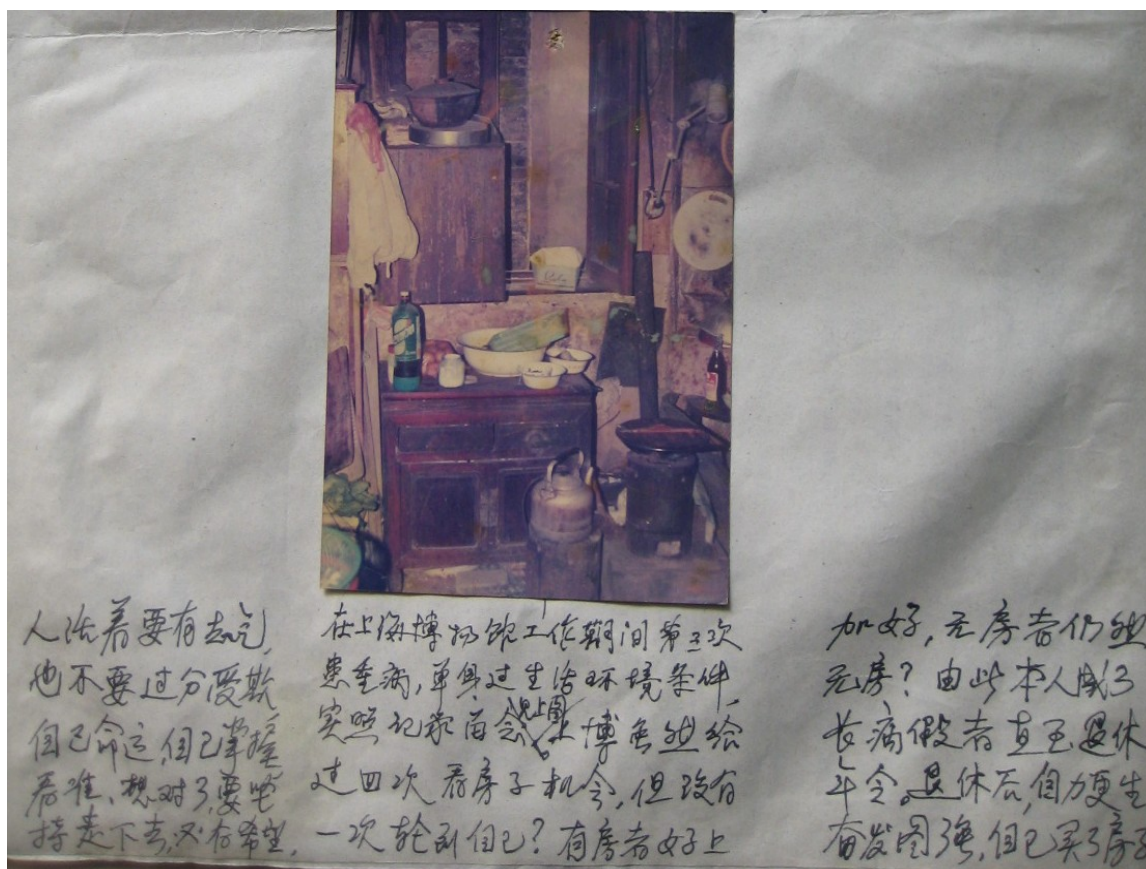 人活着要有志气,
也不要过分受欺
自己命运,自己掌握
看准、想对了,要坚
持走下去,必有希望.
在上海博物馆工作期间第三次
患重病,单身过生活环境条件,
实照记录留念(见上图)上博虽然给
过四次看房子机会,但没有
一次轮到自己?有房者好上
加好,无房者仍然
无房?由此本人成了
长病假者直至退休
年令。退休后,自力更生
奋发图强,自己买了房子